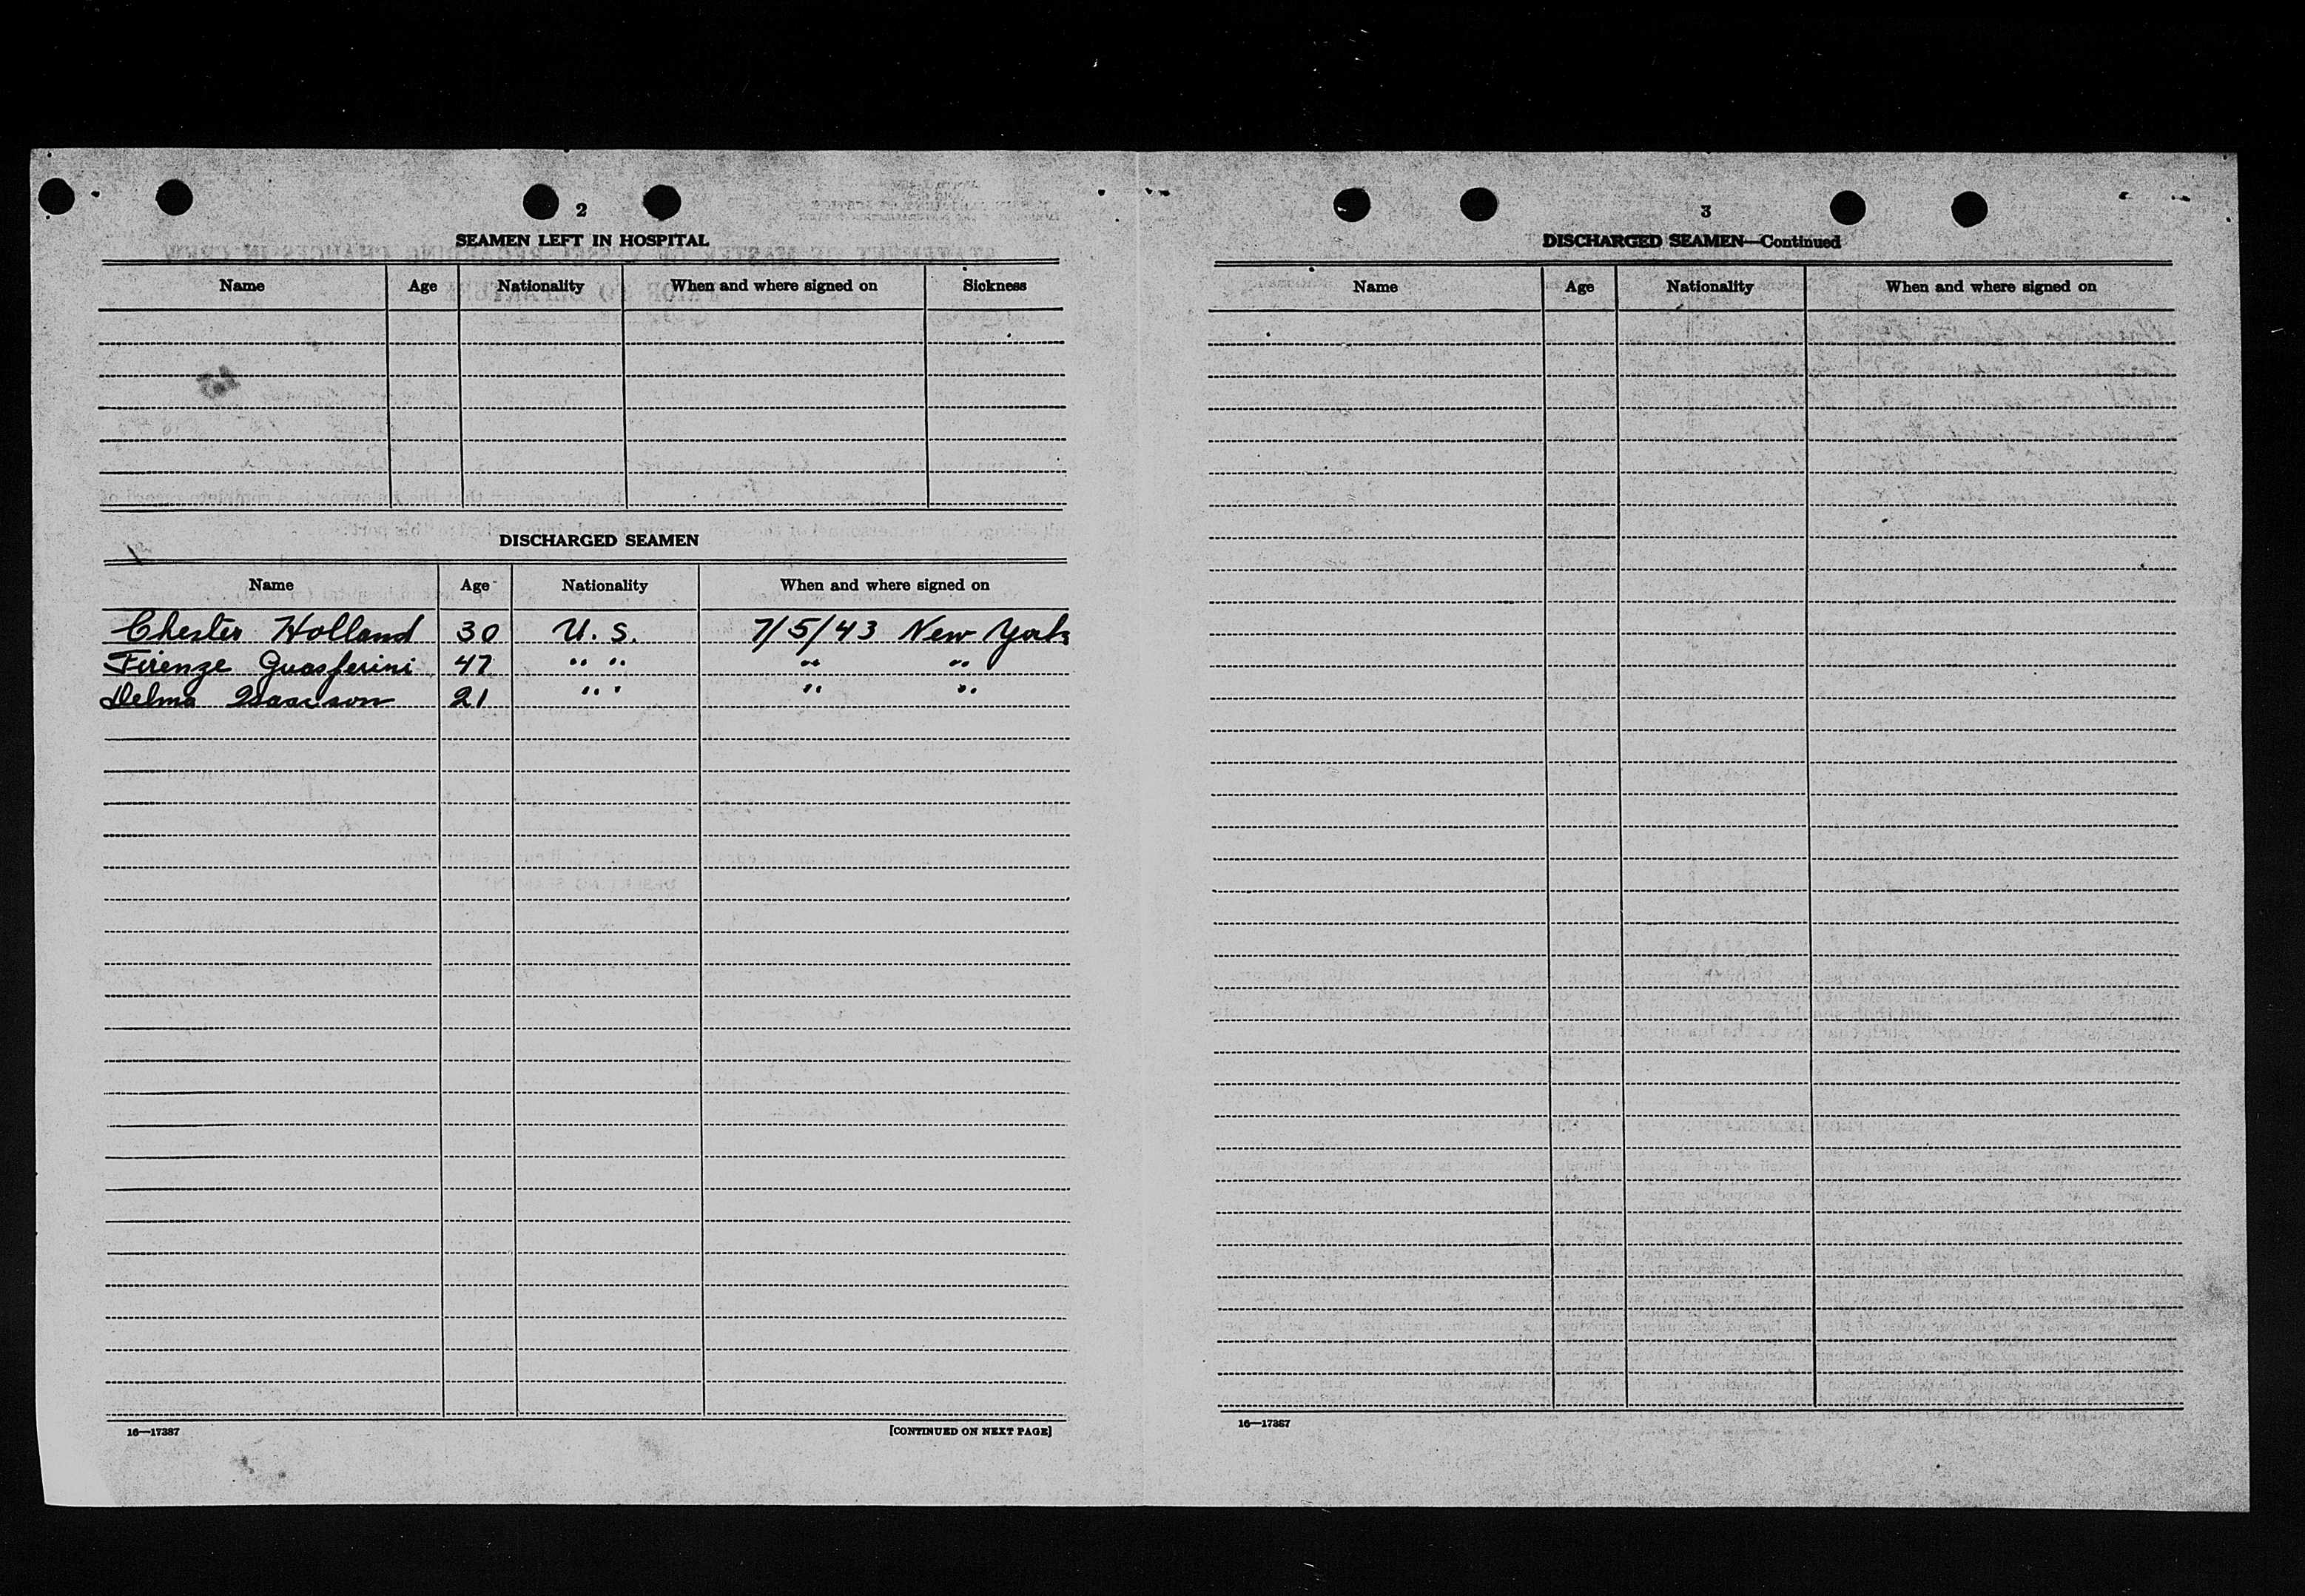 2
SEAMEN LEFT IN HOSPITAL
Name Age Nationality When and where signed on Sickness
DISCHARGED SEAMEN
Name Age Nationality When and where signed on
Chester Holland 30 U. S. 7/5/43 New York
Firenze Guasferini 47 " " " "
Delma Isacson 21 " " " "
16—17387
[CONTINUED ON NEXT PAGE]
3
DISCHARGED SEAMEN—Continued
Name Age Nationality When and where signed on
16—17387